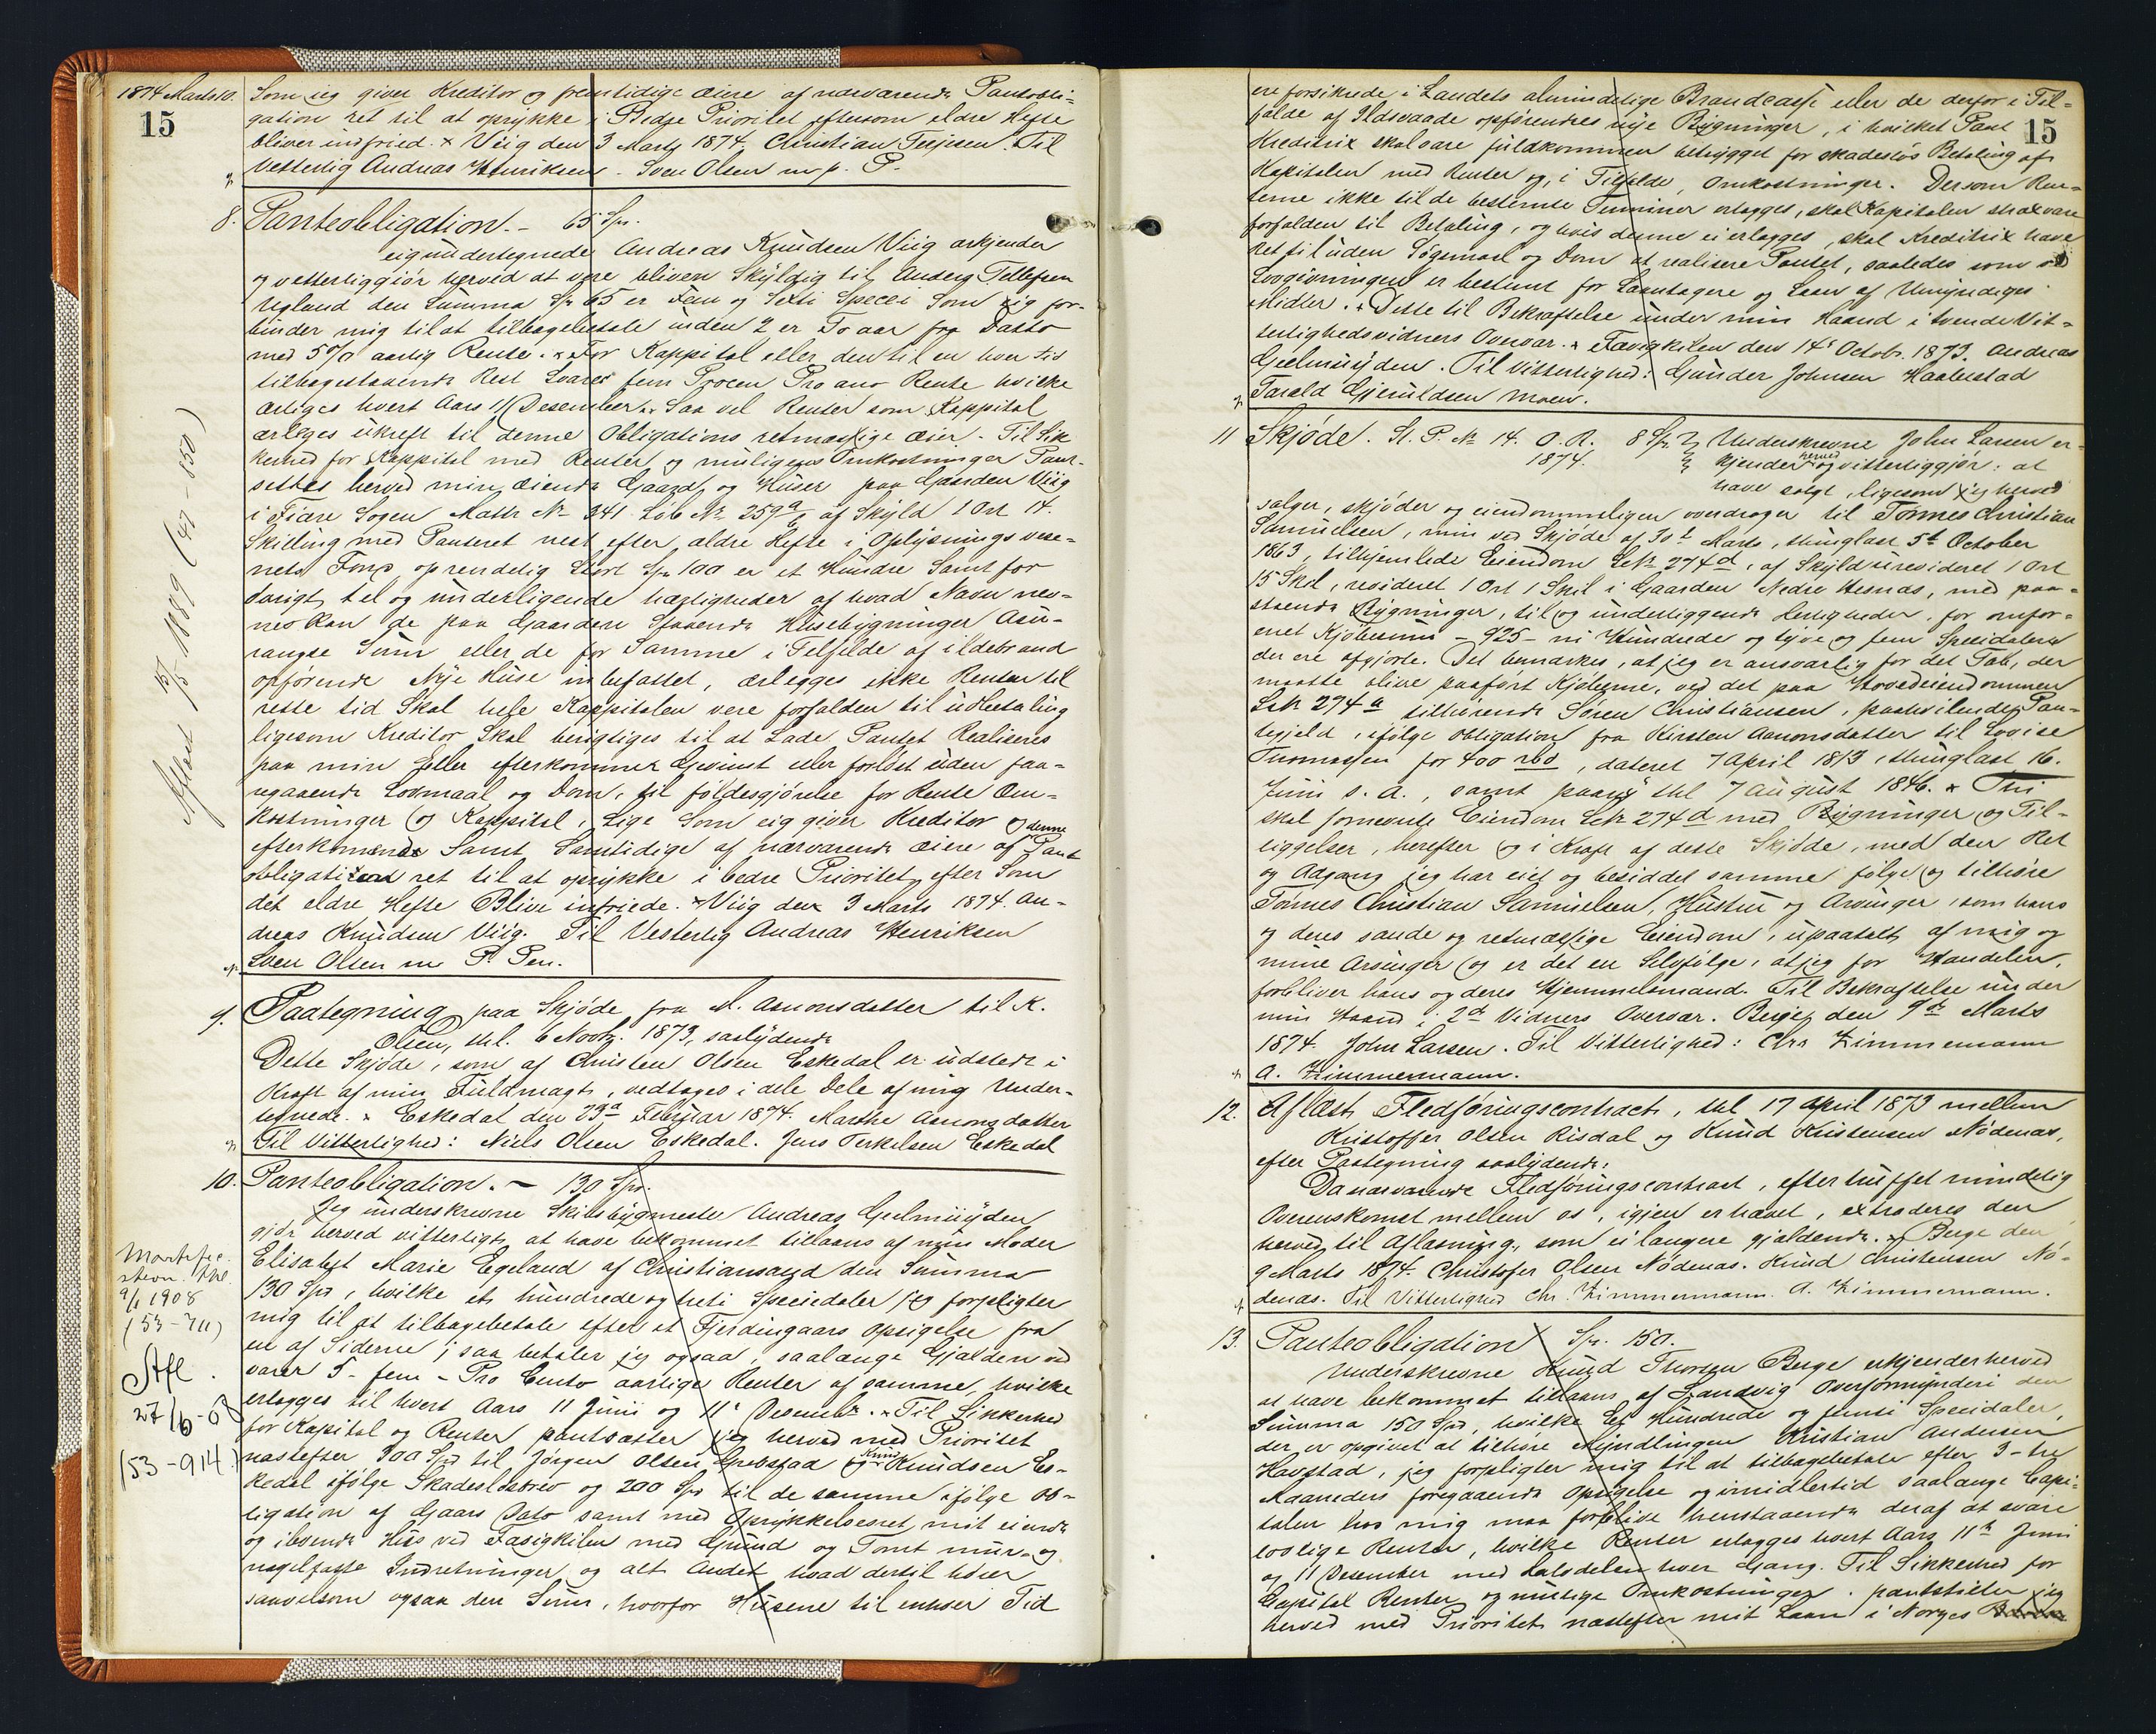 1874 Marts 10.
15
Som jeg giver Kreditor og fremtidige Eiere af nærværende Pantobli-
gation ret til at oprykke i Bedre Prioritet eftersom eldre Hefte
bliver indfried. × Viig den 3 Marts 1874. Christian Terjesen. Til
Vetterlig Andreas Henriksen. Sven Olsen m. p. P.
8. Panteobligation. - 65 Sp.
eigundertegnede Andreas Knudsen Viig erkjender
og vetterliggjør herved at vere bliven Skyldig til Anders Tellefsen
Ugland den Summa Sp 65 er Fem og Sexti Specei Som eig for-
binder mig til at tilbagebetale inden 2 er To aar fra Datto
med 5 % aarlig Rente. × For Kappital eller den til en hver tid
tilbagestaaende Rest Svares fem Procen Pro ano Rente hvilke
erliges hvert Aars 11 Desember. Saa vel Renter som Kappital
erleges ukreft til denne Obligations retmæssige Eier. - Til Sik
kerhed for Kappital med Renter og muligens Omkostninger Pant-
settes herved min eiende Gaard og Huser paa Gaarden Viig
i Fiære Sogen Mattr No 341 Løb No 259 a/b af Skyld 1 Ort 14.
Skilling med Panteret nest efter eldre Hefte i Oplysnings vese-
nets Fond oprendelig Stort Sp 100 er et Hundre Samt for
Øvrigt tel og underligende herligheder af hvad Navn nev-
nes Kan de paa Gaarden Staaende Husebygninger Asu-
rangse Sum eller de for Samme i Telfelde af ildebrand
opførende Nye Huse inbefattet, erlegges ikke Renten til
rette tid Skal hele Kappitalen vere forfalden til udbetaling
ligesom Kreditor Skal berigtiges til at Lade Pantet Realiseres
paa min Eller efterkommer Gevinst eller forlist uden faa-
regaaende Lovmaal og Dom, til føldesgjørelse for Rente Om-
kostninger og Kappital, Lige Som eig giver Kreditor og denne
efterkomende Samt Samtidige af nærværende Eiere af Pant
obligationen ret til at oprykke i bedre Prioritet efter Som
det eldre Hefte Blive infriede. × Viig den 3 Marts 1874. An-
dreas Knudsen Viig. Til Vesterlig Andreas Henriksen
Sven Olsen m P. Pen.
Aflæst 15/5 1889 (47-850)
9. Paategning paa Skjøde fra M. Aanonsdatter til K.
Olsen, thl. 6 Novbr. 1873, saalydende
Dette Skjøde, som af Christen Olsen Eskedal er udstedt i
Kraft af min Fuldmagt, vedtages i dele Dele af mig Under-
tegnede. × Eskedal den 23de Februar 1874. Marthe Aanonsdatter
Til Vitterlighed: Niels Olsen Eskedal. Jens Terkelsen Eskedal
10. Panteobligation. - 130 Spd.
Jeg underskrevne Skibsbygmester Andreas Geelmüyden
gjør herved vitterligt, at have bekommet tillaans af min Moder
Elisabet Marie Egeland af Christiansand den Summa
130 Spd, hvilke et hundrede og treti Speciedaler jeg forpligter
mig til at tilbagebetale efter et Fjerdingaars Opsigelse fra
en af Siderne; saa betaler jeg ogsaa, saalænge Gjælden ved
varer 5 - fem - Pro Cento aarlige Renter af samme, hvilke
erlægges til hvert Aars 11 Juni og 11' Decembr. × Til Sikkerhed
for Kapital og Renter pantsætter jeg herved med Prioritet
næstefter 900 Spd til Jørgen Olsen Grebstad og Knud Knudsen Es-
kedal ifølge Skadesløsbrev og 200 Spd til de samme ifølge Ob-
ligation af Gaars Dato samt med Oprykkelsesret, mit eiende
og iboende Hus ved Fævigkilen med Grund og Tomt mur- og
nagelfaste Indretninger og alt Andet hvad dertil hører
saavelsom ogsaa den Sum, hvorfor Husene til enhver Tid
9/1 1908
(53-711)
Afl.
27/6-08
(53-914)
15
ere forsikrede i Landets almindelige Brandcasse eller de derfor i Til-
fælde af Ildsvaade opførendes nye Bygninger, i hvilket Pant
Kreditrix skal være fuldkommen betrygget for skadesløs Betaling af
Kapitalen med Renter og, i Tilfælde, Omkostninger. Dersom Ren-
terne ikke til de bestemte Terminer erlægges, skal Kapitalen strax være
forfalden til Betaling, og hvis denne ei erlægges, skal Kreditrix have
Ret til uden Søgsmaal og Dom at realisere Pantet, saaledes som ved
Lovgivningen er bestemt for Laantagere og Laan af Umyndiges
Midler. × Dette til Bekræftelse under min Haand i tvende Vit-
terlighedsvidners Overvær. × Fævigkilen den 14' Octobr. 1873. Andreas
Geelmüyden. Til Vitterlighed: Gunder Johnsen Haaberstad
Tarald Gjeruldsen Moen.
11 Skjøde. St. P. No 14. O. R. 8 Sp. Underskrevne John Larsen er-
1874. kjender herved og vitterliggjør: at
have solgt, ligesom jeg herved
sælger, skjøder og eiendommeligen overdrager til Tønnes Christian
Samuelsen, min ved Skjøde af 30t Marts, thinglæst 5t October
1863, tilhjemlede Eiendom Lnr 274 d, af Skyld urevideret 1 Ort
15 Skil, revideret 1 Ort 1 Skil i Gaarden Nedre Hesnæs, med paa-
staaende Bygninger, til og underliggende Herligheder, for omfor-
enet Kjøbesum - 925 - ni Hundrede og tyve og fem Speciedaler
der ere afgjorte. Det bemærkes, at jeg er ansvarlig for det Tab, der
maatte blive paaført Kjøberne, ved det paa Hovedeiendommen
Lnr 274 a tilhørende Søren Christiansen, paahvilende Pan-
tegjeld, ifølge Obligation fra Kirsten Aanonsdatter til Lovise
Thomassen for 400 rbd, dateret 7 April 1813, thinglæst 16.
Juni s. A., samt paany thl 7 August 1846. × Thi
skal fornevnte Eiendom Lnr 274 d med Bygninger og Til-
liggelser, herefter og i Kraft af dette Skjøde, med den Ret
og Adgang jeg har eiet og besiddet samme følge og tilhøre
Tønnes Christian Samuelsen, Hustru og Arvinger, som hans
og deres sande og retmæssige Eiendom, upaatalt af mig og
mine Arvinger og er det en Selvfølge, at jeg for Handelen,
forbliver hans og deres Hjemmelsmand. Til Bekræftelse under
min Haand i 2de Vidners Overvær. Berge, den 9de Marts
1874. John Larsen. Til Vitterlighed: Chr Zimmermann
A. Zimmermann.
12. Aflæst, Fledføringscontract, thl 17 April 1873 mellem
Kristoffer Olsen Risdal og Knud Kristensen Nødenæs,
efter Paategning saalydende:
Da nærværende Fledføringscontract, efter truffet mindelig
Overenskomst mellem os, igjen er hævet, extraderes den
herved til Aflæsning, som ei længere gjældende. × Berge den
9 Marts 1874. Christofer Olsen Nødenæs. Knud Christensen Nø-
denæs. Til Vitterlighed Chr. Zimmermann. A. Zimmermann.
13. Panteobligation Sp. 150.
Underskrevne Knud Thorsen Berge erkjender herved
at have bekommet tillaans af Landvig Overformynderi den
Summa 150 Spd, hvilke Et Hundrede og femti Speciedaler,
der er opgivet at tilhøre Myndlingen Kristian Andersen
Havstad, jeg forpligter mig til at tilbagebetale efter 3 - tre
Maaneders foregaaende Opsigelse og imidlertid saalænge Capi-
talen hos mig maa forblive henstaaende deraf at svare
lovlige Renter, hvilke Renter erlægges hvert Aars 11te Juni
og 11 Desember med Halvdelen hver Gang. Til Sikkerhed for
Capital Renter og mulige Omkostninger pantstiller jeg
herved med Prioritet næstefter mit Laan i Norges